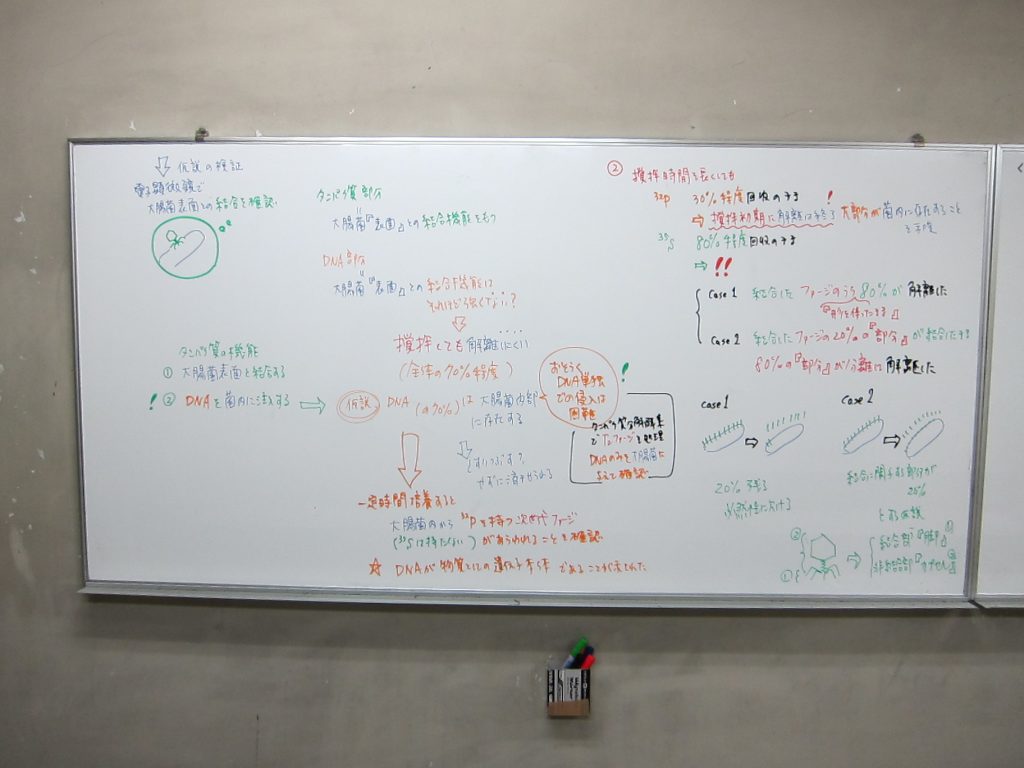 仮説の検証
電子顕微鏡で
大腸菌表面との結合を確認
タンパク質部分
大腸菌『表面』との結合機能をもつ
DNA部分
大腸菌『表面』との結合機能は
それほど強くない?
撹拌しても解離しにくい
(全体の70%程度)
タンパク質の機能
① 大腸菌表面と結合する
! ② DNAを菌内に注入する
仮説 DNA (の70%) は大腸菌内部
に存在する
おそらく
DNA単独
での侵入は
困難
!
タンパク質分解酵素
でT₂ファージを処理
DNAのみを大腸菌に
与えて確認
すりつぶす?
一定時間培養すると
大腸菌内から ³²Pを持つ次世代ファージ
(³⁵Sは持たない) があらわれることを確認
☆ DNAが物質としての遺伝子本体であることが示された
② 撹拌時間を長くしても
³²P 30%程度回収のまま
⇨ 撹拌初期に解離は終了 !
大部分が菌内に存在すること
を示唆
³⁵S 80%程度回収のまま
⇨ !!
Case 1 結合したファージのうち80%が解離した
Case 2 結合したファージの20%の『部分』が結合したまま
80%の『部分』が分離は解離した
case 1
20%残る
必然性に欠ける
Case 2
結合に関する部分が
20%
とする仮説
②
①
結合部『脚』①
非結合部『カプセル』②